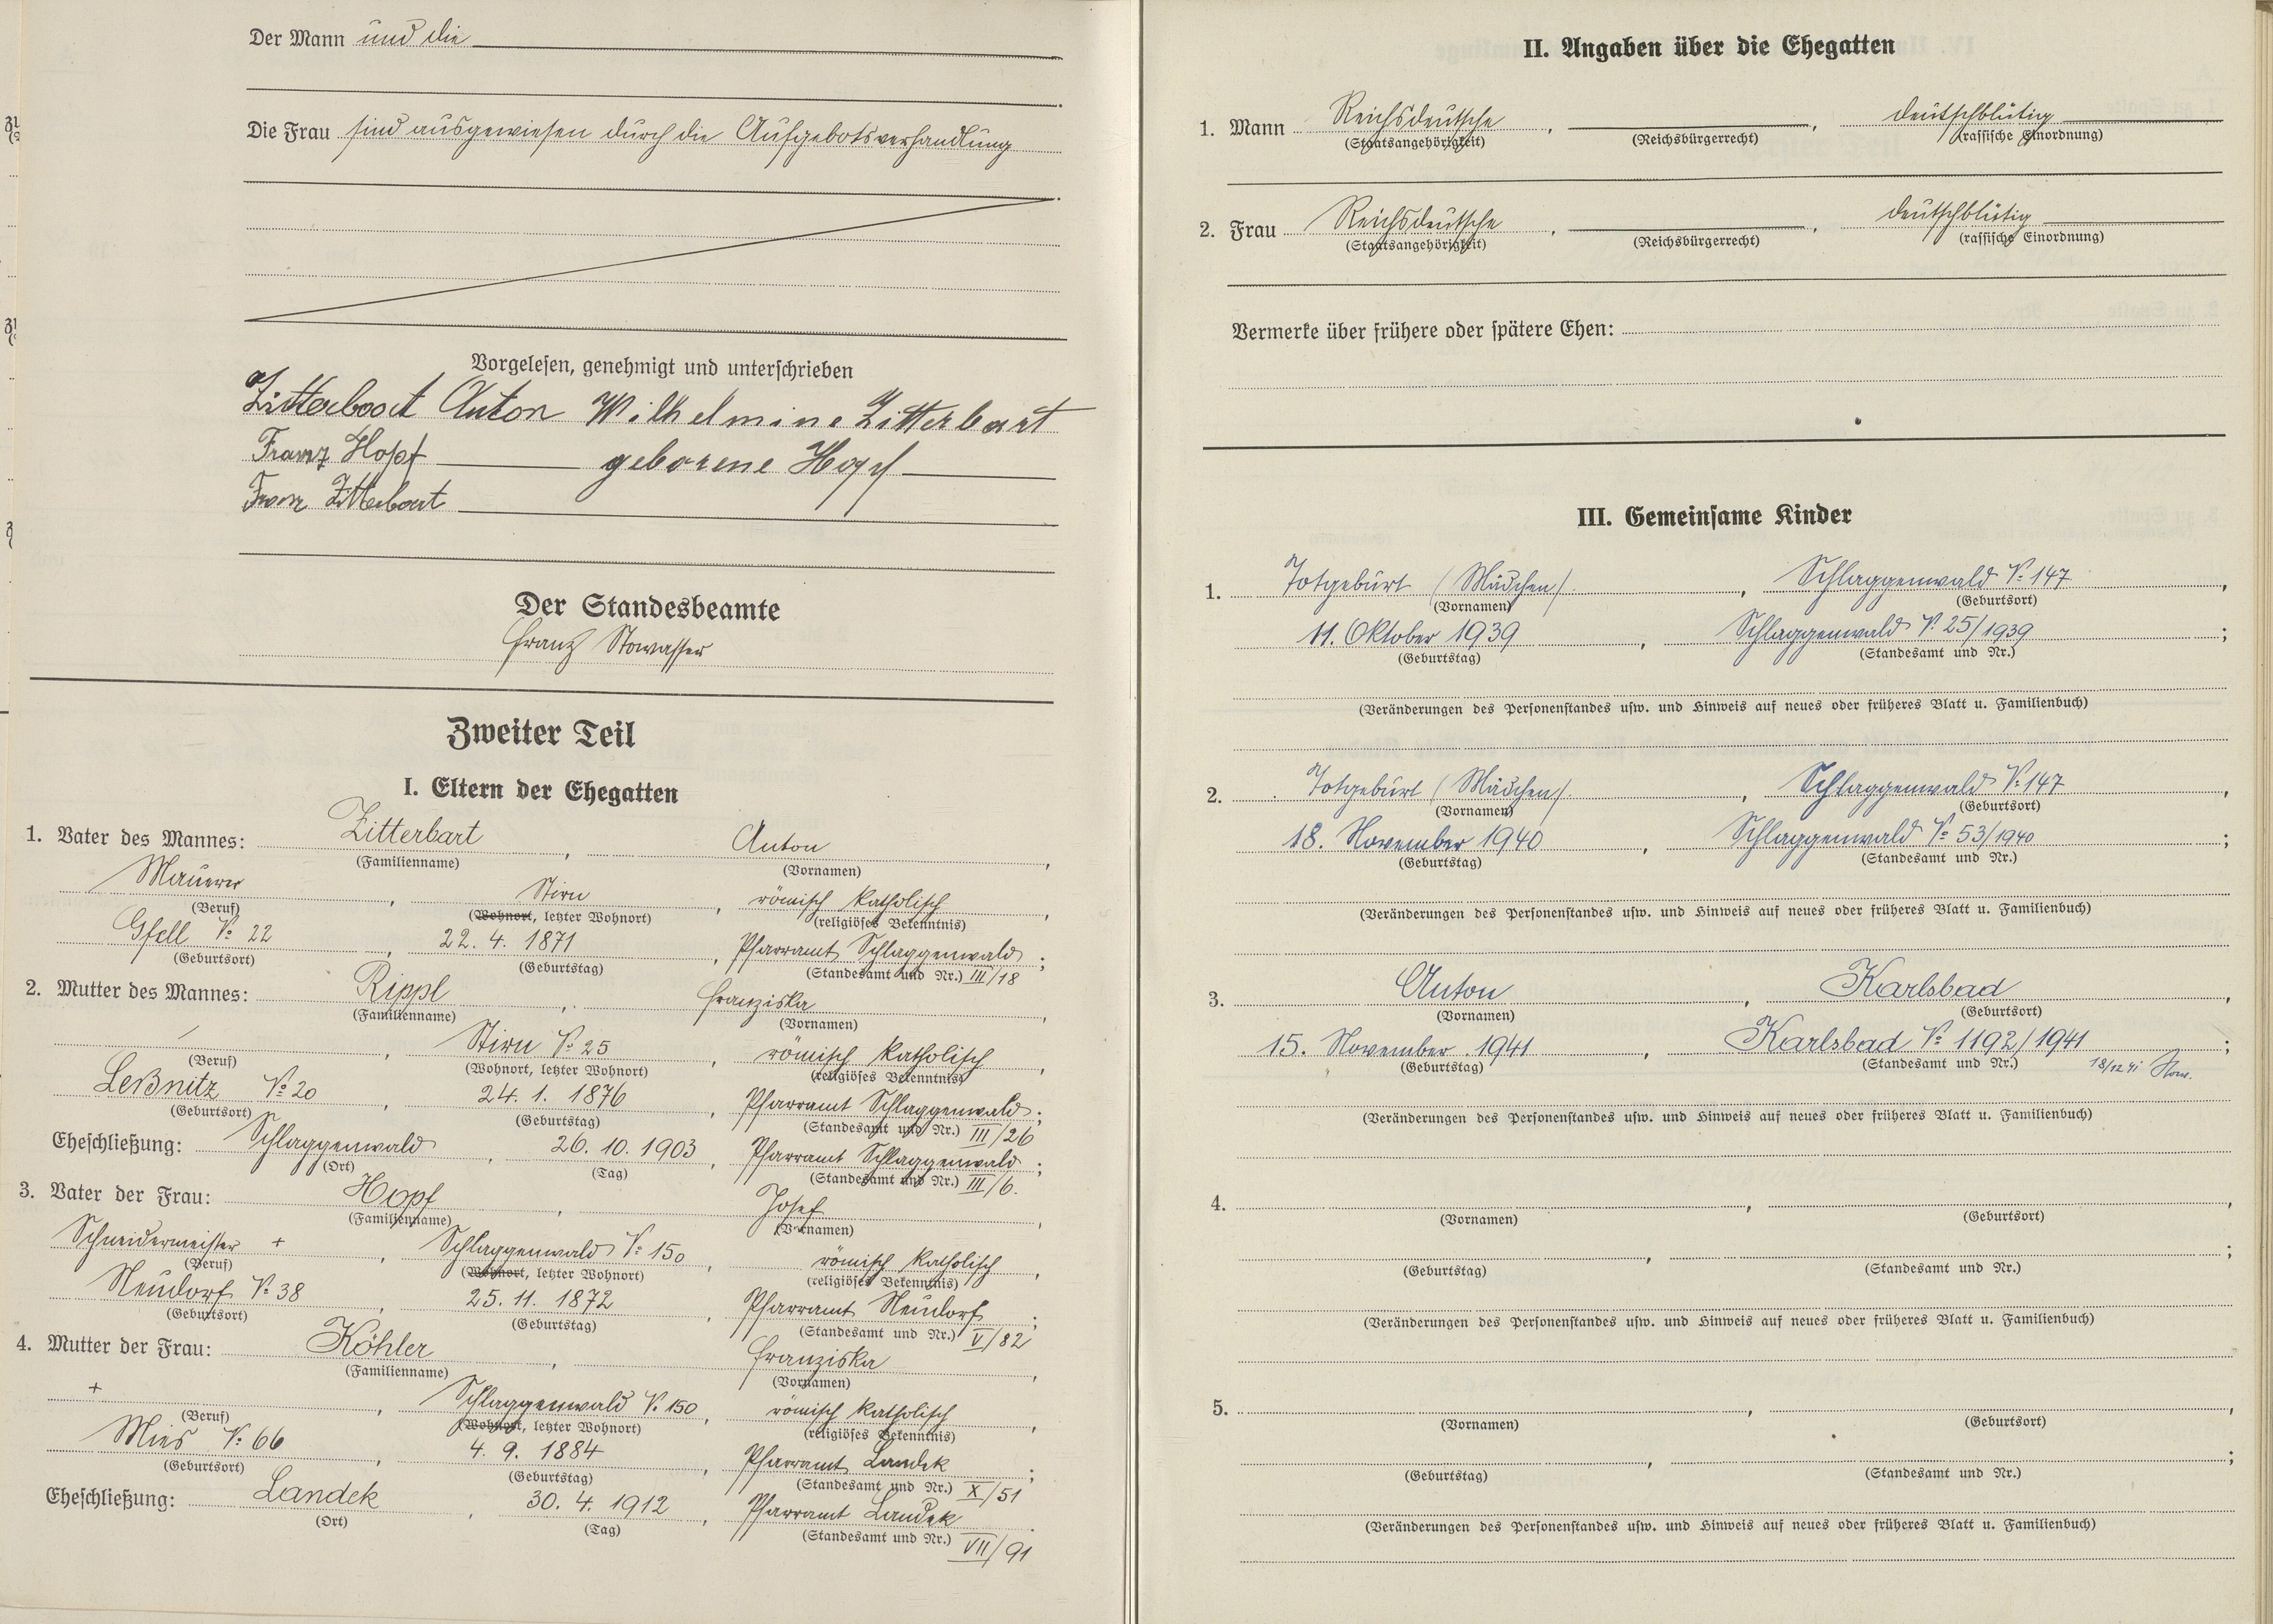 Der Mann und die
Die Frau sind ausgewiesen durch die Aufgebotsverhandlung
Vorgelesen, genehmigt und unterschrieben
Zitterbart Anton Wilhelmine Zitterbart
Franz Hopf geborene Hopf
Franz Zitterbart
Der Standesbeamte
Franz Stowasser
Zweiter Teil
I. Eltern der Ehegatten
1. Vater des Mannes: Zitterbart, Anton,
(Familienname) (Vornamen)
Maurer, Stirn, römisch katholisch,
(Beruf) (Wohnort, letzter Wohnort) (religiöses Bekenntnis)
Gfell No 22, 22. 4. 1871, Pfarramt Schlaggenwald;
(Geburtsort) (Geburtstag) (Standesamt und Nr.) III/18
2. Mutter des Mannes: Rippl, Franziska,
(Familienname) (Vornamen)
/, Stirn No 25, römisch katholisch,
(Beruf) (Wohnort, letzter Wohnort) (religiöses Bekenntnis)
Leßnitz No 20, 24. 1. 1876, Pfarramt Schlaggenwald;
(Geburtsort) (Geburtstag) (Standesamt und Nr.) III/26
Eheschließung: Schlaggenwald, 26. 10. 1903, Pfarramt Schlaggenwald;
(Ort) (Tag) (Standesamt und Nr.) III/6.
3. Vater der Frau: Hopf, Josef,
(Familienname) (Vornamen)
Schneidermeister +, Schlaggenwald No 150, römisch katholisch,
(Beruf) (Wohnort, letzter Wohnort) (religiöses Bekenntnis)
Neudorf No 38, 25. 11. 1872, Pfarramt Neudorf;
(Geburtsort) (Geburtstag) (Standesamt und Nr.) V/82
4. Mutter der Frau: Köhler, Franziska,
(Familienname) (Vornamen)
+, Schlaggenwald No 150, römisch katholisch,
(Beruf) (Wohnort, letzter Wohnort) (religiöses Bekenntnis)
Mies No 66, 4. 9. 1884, Pfarramt Landek;
(Geburtsort) (Geburtstag) (Standesamt und Nr.) X/51
Eheschließung: Landek, 30. 4. 1912, Pfarramt Landek.
(Ort) (Tag) (Standesamt und Nr.) VII/91
II. Angaben über die Ehegatten
1. Mann Reichsdeutsche, , deutschblütig
(Staatsangehörigkeit) (Reichsbürgerrecht) (rassische Einordnung)
2. Frau Reichsdeutsche, , deutschblütig
(Staatsangehörigkeit) (Reichsbürgerrecht) (rassische Einordnung)
Vermerke über frühere oder spätere Ehen:
III. Gemeinsame Kinder
1. Totgeburt (Mädchen), Schlaggenwald No 147,
(Vornamen) (Geburtsort)
11. Oktober 1939, Schlaggenwald No 25/1939;
(Geburtstag) (Standesamt und Nr.)
(Veränderungen des Personenstandes usw. und Hinweis auf neues oder früheres Blatt u. Familienbuch)
2. Totgeburt (Mädchen), Schlaggenwald No 147,
(Vornamen) (Geburtsort)
18. November 1940, Schlaggenwald No 53/1940;
(Geburtstag) (Standesamt und Nr.)
(Veränderungen des Personenstandes usw. und Hinweis auf neues oder früheres Blatt u. Familienbuch)
3. Anton, Karlsbad,
(Vornamen) (Geburtsort)
15. November 1941, Karlsbad No 1192/1941;
(Geburtstag) (Standesamt und Nr.) 18/12 41 Stow.
(Veränderungen des Personenstandes usw. und Hinweis auf neues oder früheres Blatt u. Familienbuch)
4. , ,
(Vornamen) (Geburtsort)
, ;
(Geburtstag) (Standesamt und Nr.)
(Veränderungen des Personenstandes usw. und Hinweis auf neues oder früheres Blatt u. Familienbuch)
5. , ,
(Vornamen) (Geburtsort)
, ;
(Geburtstag) (Standesamt und Nr.)
(Veränderungen des Personenstandes usw. und Hinweis auf neues oder früheres Blatt u. Familienbuch)